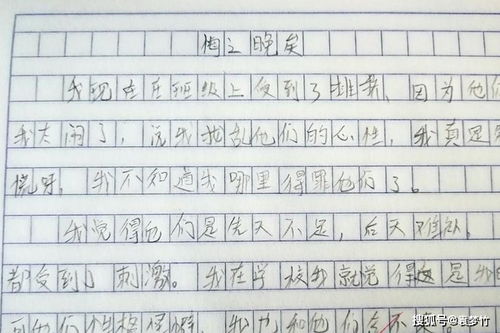 悔之晚矣
我现在在班级上受到了排挤,因为他们
我太闹了,说我扰乱他们的心性,我真是
慌呀。我不知道我哪里得罪他们了。
我觉得他们是先天不足,后天难补。
都受到了刺激。我在学校我就觉得这是我
我也和他们合不
搜狐号@袁梦竹